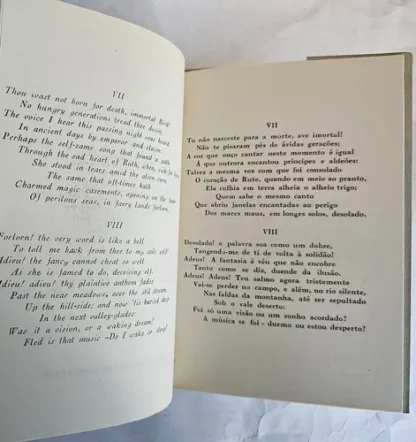 VII
Thou wast not born for death, immortal Bird!
No hungry generations tread thee down;
The voice I hear this passing night was heard
In ancient days by emperor and clown:
Perhaps the self-same song that found a path
Through the sad heart of Ruth, when, sick for
She stood in tears amid the alien corn;
The same that oft-times hath
Charmed magic casements, opening on the foam
Of perilous seas, in faery lands forlorn.
VIII
Forlorn! the very word is like a bell
To toll me back from thee to my sole self!
Adieu! the fancy cannot cheat so well
As she is famed to do, deceiving elf.
Adieu! adieu! thy plaintive anthem fades
Past the near meadows, over the still stream,
Up the hill-side; and now 'tis buried deep
In the next valley-glades:
Was it a vision, or a waking dream?
Fled is that music –Do I wake or sleep?
VII
Tu não nasceste para a morte, ave imortal!
Não te pisaram pés de ávidas gerações;
A voz que ouço cantar neste momento é igual
À que outrora encantou príncipes e aldeões:
Talvez a mesma voz com que foi consolado
O coração de Rute, quando em meio ao pranto,
Ela colhia em terra alheia o alheio trigo;
Quem sabe o mesmo canto
Que abriu janelas encantadas ao perigo
Dos mares maus, em longes solos, desolado.
VIII
Desolado! a palavra soa como um dobre,
Tangendo-me de ti de volta à solidão!
Adeus! A fantasia é véu que não encobre
Tanto como se diz, duende da ilusão.
Adeus! Adeus! Teu salmo agora tristemente
Vai-se perder no campo, e além, no rio silente,
Nas faldas da montanha, até ser sepultado
Sob o vale deserto:
Foi só uma visão ou um sonho acordado?
A música se foi - durmo ou estou desperto?